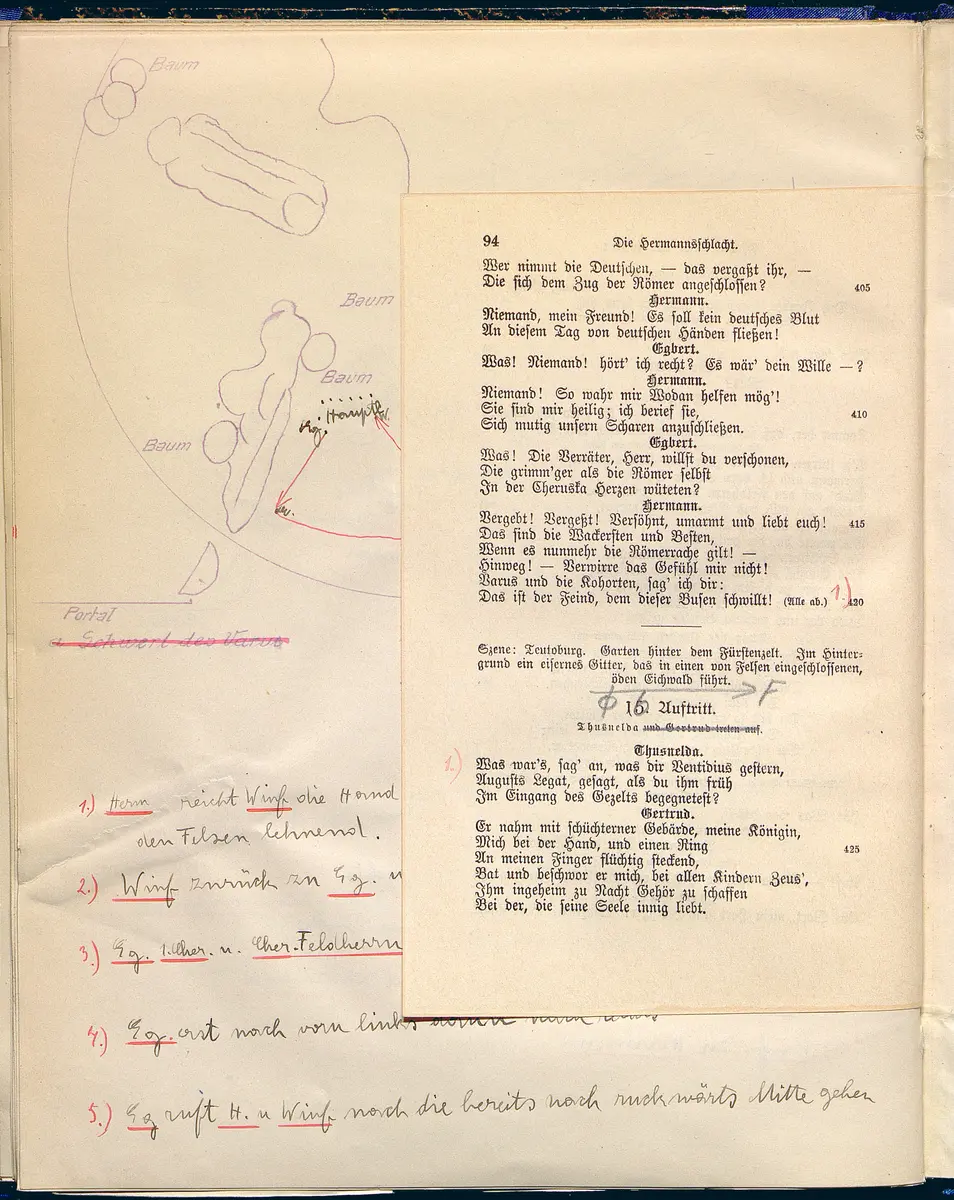 Baum
Baum
Baum
Baum
Eg.
Hauptl.
Portal
a Schwert des Varus
1.) Herm reicht Winf die Hand
den Felsen lehnend.
2.) Winf zurück zu Eg. u
3.) Eg. 1. Cher. u. Cher. Feldherrn
4.) Eg. erst nach vorn links dann nach
5.) Eg ruft H. u Winf nach die bereits nach rückwärts Mitte gehen
94 Die Hermannsschlacht.
Wer nimmt die Deutschen, — das vergaßt ihr, —
Die sich dem Zug der Römer angeschlossen? 405
Hermann.
Niemand, mein Freund! Es soll kein deutsches Blut
An diesem Tag von deutschen Händen fließen!
Egbert.
Was! Niemand! hört' ich recht? Es wär' dein Wille — ?
Hermann.
Niemand! So wahr mir Wodan helfen mög'!
Sie sind mir heilig; ich berief sie, 410
Sich mutig unsern Scharen anzuschließen.
Egbert.
Was! Die Verräter, Herr, willst du verschonen,
Die grimm'ger als die Römer selbst
In der Cheruska Herzen wüteten?
Hermann.
Vergebt! Vergeßt! Versöhnt, umarmt und liebt euch! 415
Das sind die Wackersten und Besten,
Wenn es nunmehr die Römerrache gilt! —
Hinweg! — Verwirre das Gefühl mir nicht!
Varus und die Kohorten, sag' ich dir:
Das ist der Feind, dem dieser Busen schwillt! (Alle ab.) 1.) 420
Szene: Teutoburg. Garten hinter dem Fürstenzelt. Im Hinter-
grund ein eisernes Gitter, das in einen von Felsen eingeschlossenen,
öden Eichwald führt.
F
15. Auftritt.
Thusnelda und Gertrud treten auf.
Thusnelda.
1.) Was war's, sag' an, was dir Ventidius gestern,
Augusts Legat, gesagt, als du ihm früh
Im Eingang des Gezelts begegnetest?
Gertrud.
Er nahm mit schüchterner Gebärde, meine Königin,
Mich bei der Hand, und einen Ring 425
An meinen Finger flüchtig steckend,
Bat und beschwor er mich, bei allen Kindern Zeus',
Ihm ingeheim zu Nacht Gehör zu schaffen
Bei der, die seine Seele innig liebt.